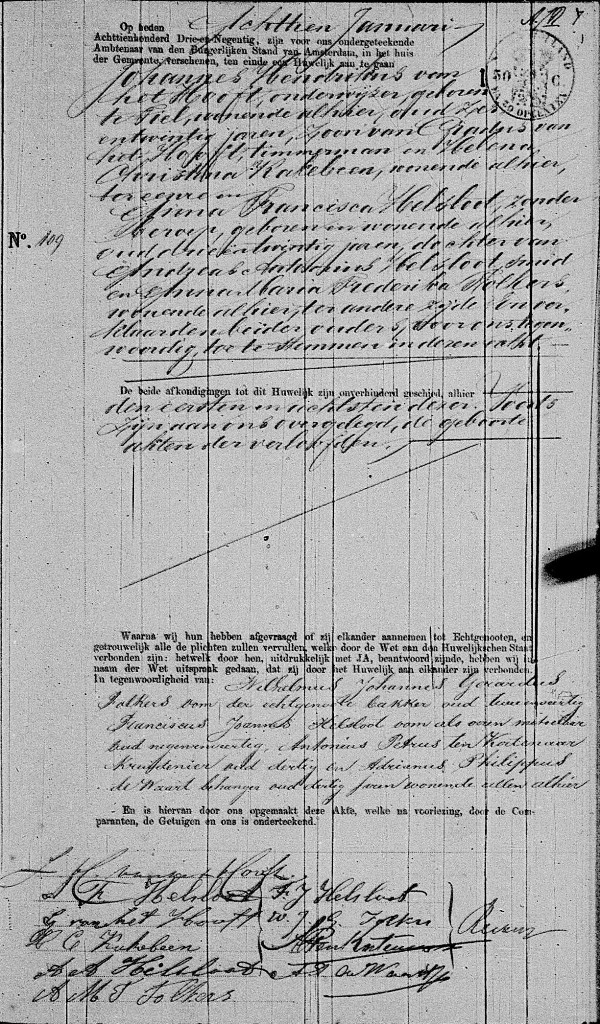 Op heden Achttien Januari
Achttienhonderd Drie en Negentig, zijn voor ons ondergeteekende
Ambtenaar van den Burgerlijken Stand van Amsterdam, in het huis
der Gemeente, verschenen, ten einde een Huwelijk aan te gaan
Johannes Hendrikus van
het Hooft, onderwijzer, geboren
te Tiel, wonende alhier, oud zes
entwintig jaren, zoon van Gradus van
het Hooft, timmerman en Helena
Christina Kakebeen, wonende alhier,
ter eenre en
Anna Francisca Helsloot, zonder
beroep, geboren en wonende alhier,
oud drieentwintig jaren, dochter van
Andreas Antonius Helsloot, smid
en Anna Maria Frederika Folkers,
wonende alhier, ter andere zijde En ver
klaarden beider ouders, voor ons tegen
woordig, toe te stemmen in dezen echt.
No. 109
50 C
De beide afkondigingen tot dit Huwelijk zijn onverhinderd geschied, alhier
den eersten en achtsten dezer. Voorts
zijn aan ons overgelegd, de geboorte
akten der verloofden.
Waarna wij hun hebben afgevraagd of zij elkander aannemen tot Echtgenooten, en
getrouwelijk alle de plichten zullen vervullen, welke door de Wet aan den Huwelijkschen Staat
verbonden zijn: hetwelk door hen, uitdrukkelijk met JA, beantwoord zijnde, hebben wij in
naam der Wet uitspraak gedaan, dat zij door het Huwelijk aan elkander zijn verbonden.
In tegenwoordigheid van: Wilhelmus Johannes Gerardus
Folkers oom der echtgenoote bakker oud tweeenveertig
Franciscus Joannes Helsloot oom als voren metselaar
oud negenenveertig, Antonius Petrus ten
Kruidenier oud dertig en Adrianus Philippus
de Waart behanger oud dertig jaren wonende allen alhier
En is hiervan door ons opgemaakt deze Akte, welke na voorlezing, door de Com-
paranten, de Getuigen en ons is onderteekend.
J. H. van het Hooft
A F Helsloot F. J Helsloot
G van het Hooft W. J. G. Folkers
H C Kakebeen
A A Helsloot A. P. de Waart
A M F Folkers